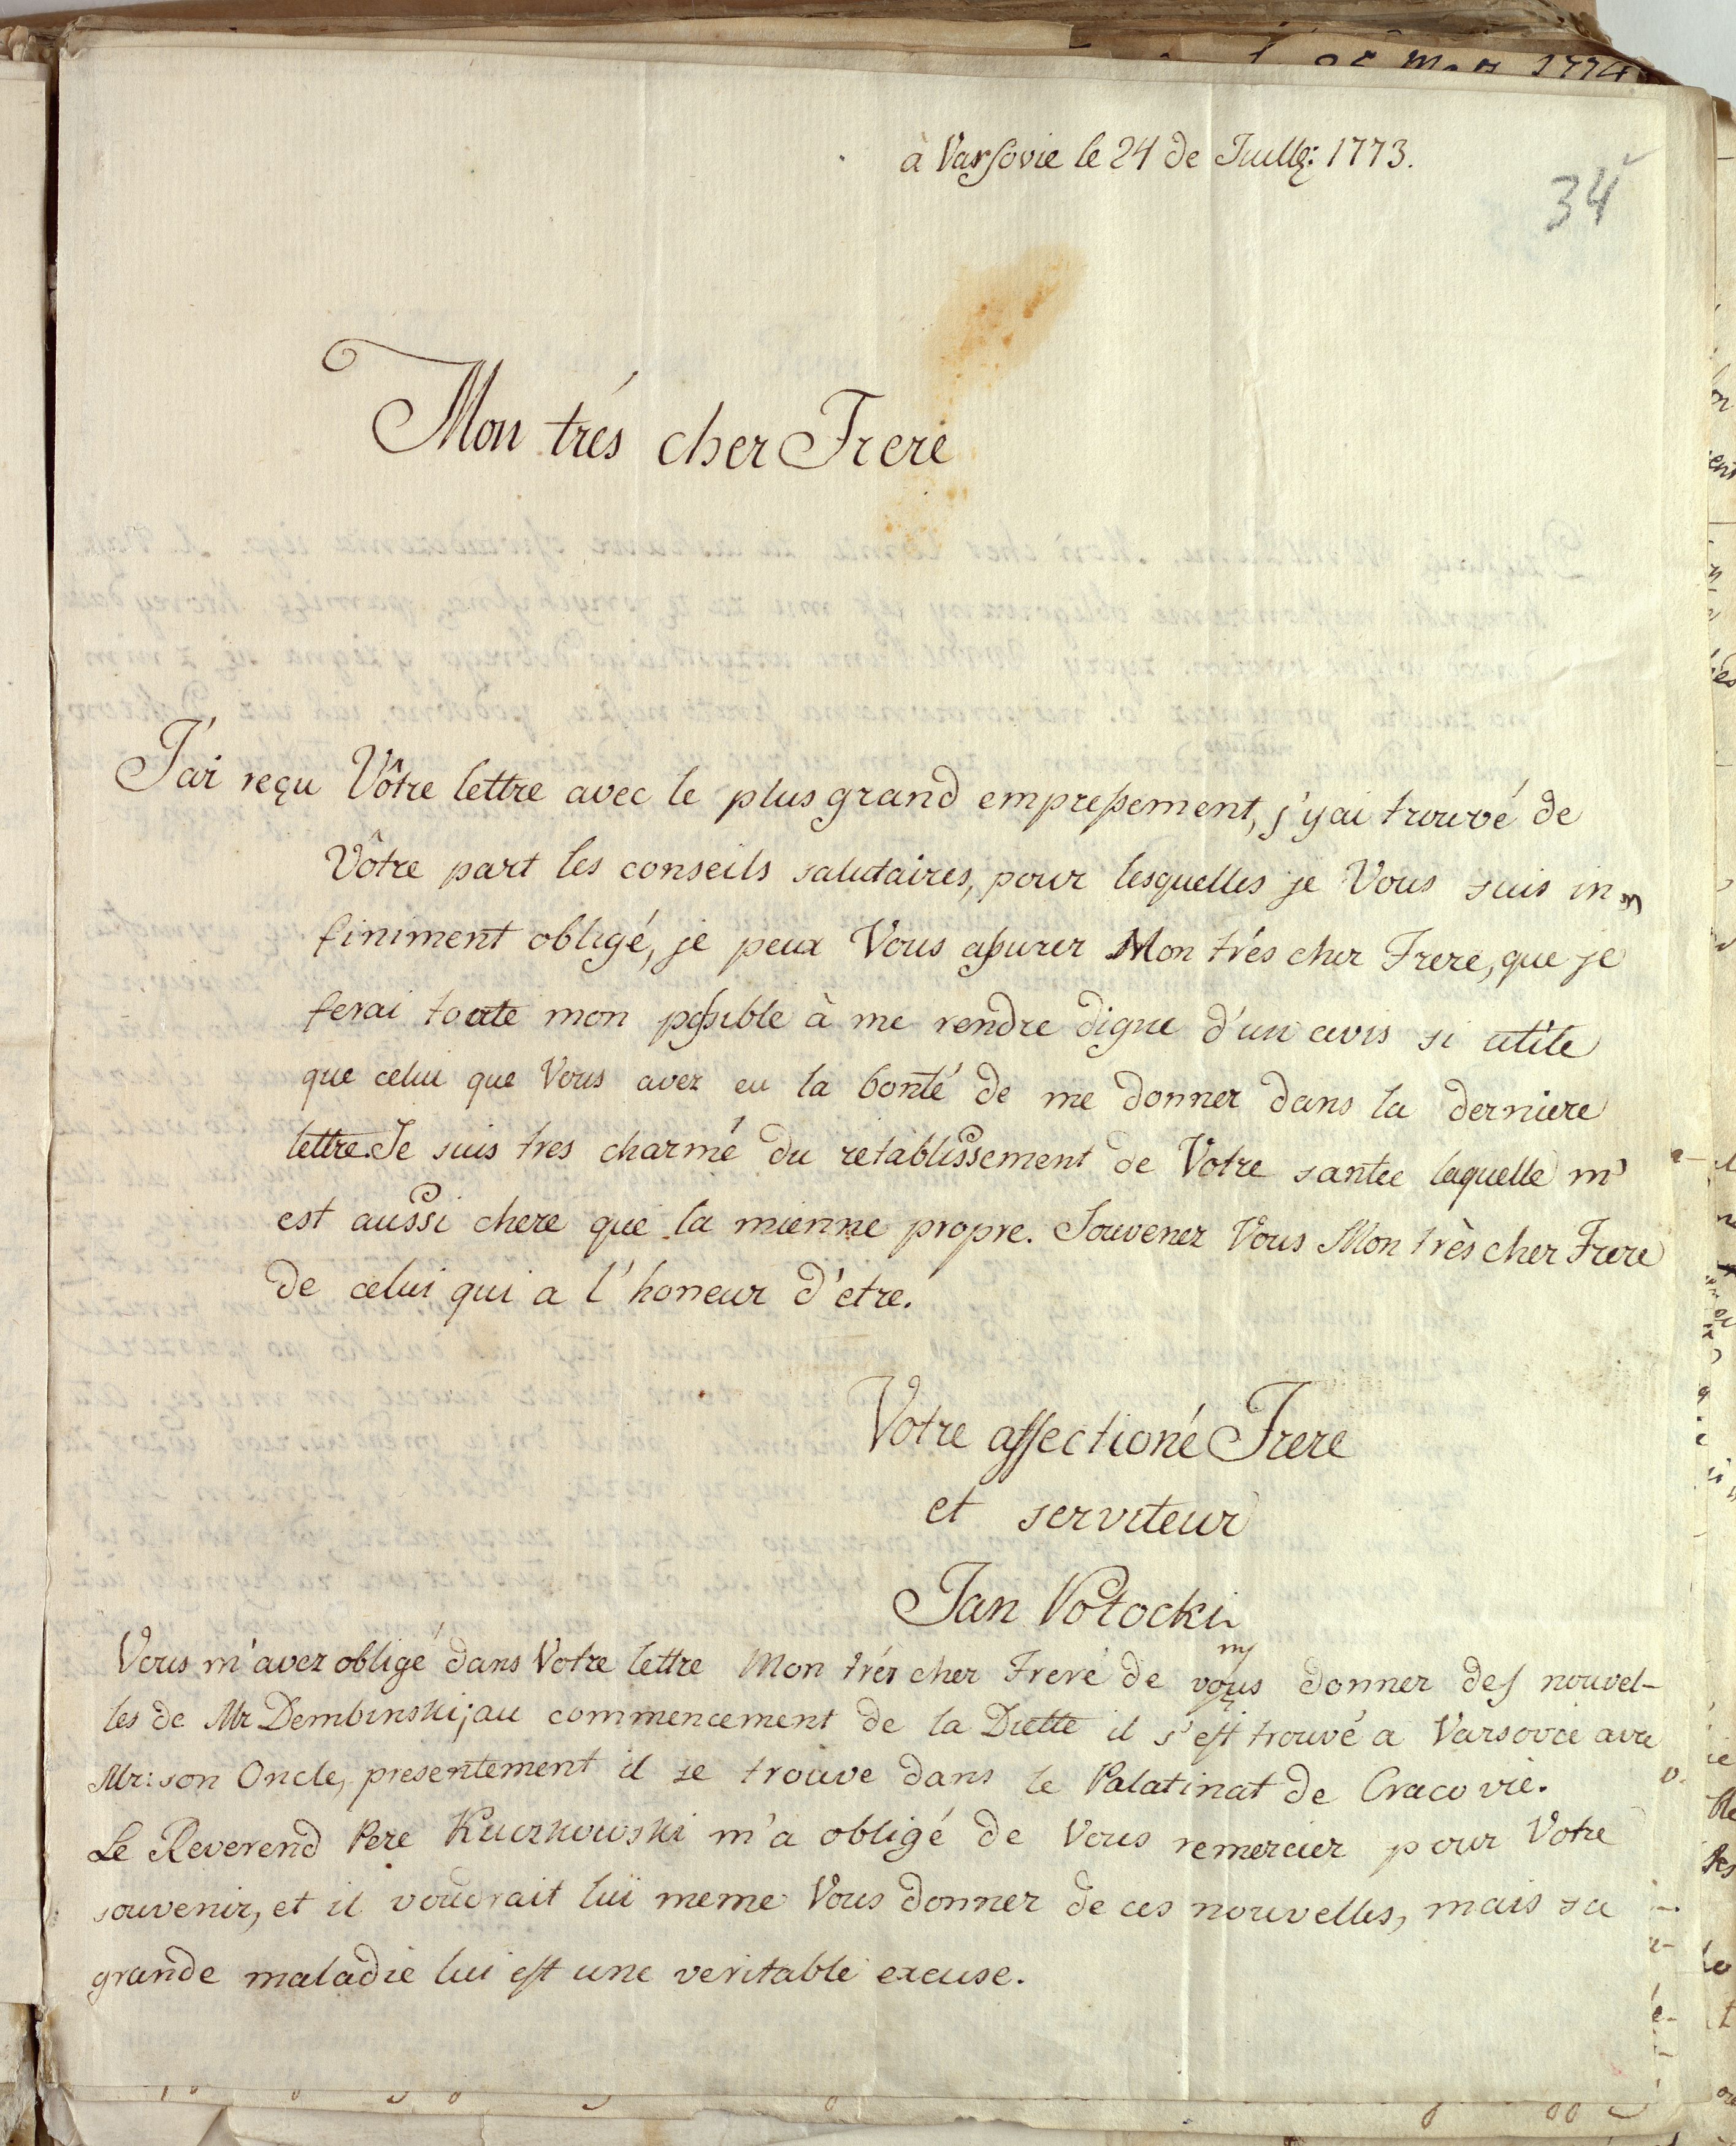 à Varsovie le 24 de Juillẹ: 1773.
34
Mon trés cher Frere
J'ai reçu Vôtre lettre avec le plus grand empressement, j'y ai trouvé de
Vôtre part les conseils salutaires, pour lesquelles je Vous suis in
finiment obligé, je peux Vous assurer Mon trés cher Frere, que je
ferai toute mon possible à me rendre digne d'un avis si utile
que celui que Vous avez eu la bonté de me donner dans la derniere
lettre. Je suis tres charmé du retablissement de Votre santee laquelle m'
est aussi chere que la mienne propre. Souvenez Vous Mon très cher Frere
de celui qui a l'honeur d'etre.
Votre affectioné Frere
et serviteur
Jan Potocki
Vous m'avez obligé dans Votre lettre Mon trés cher Frere de vous donner des nouvel-
les de Mr Dembinski; au commencement de la Diette il s'est trouvé a Varsovie avec
Mr: son Oncle, presentement il se trouve dans le Palatinat de Cracovie.
Le Reverend Pere Kuczkowski m'a obligé de Vous remercier pour Votre
souvenir, et il voudrait lui meme Vous donner de ces nouvelles, mais sa
grande maladie lui est une veritable excuse.